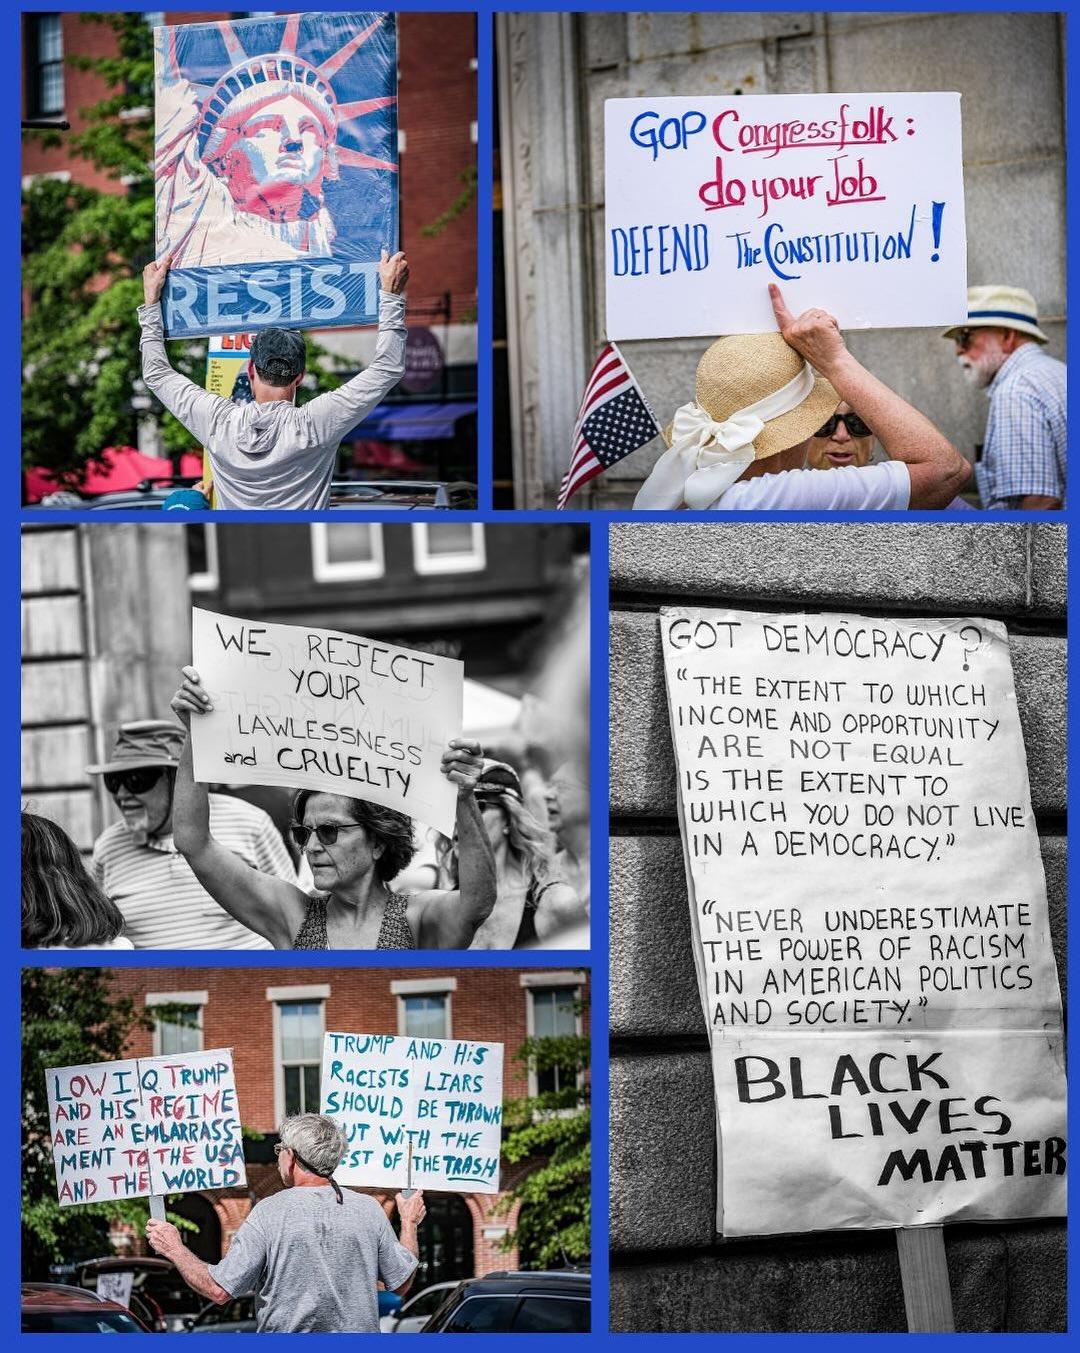 RESIST
GOP Congressfolk:
do your Job
DEFEND The CONSTITUTION!
WE REJECT
YOUR
LAWLESSNESS
and CRUELTY
GOT DEMOCRACY?
"THE EXTENT TO WHICH
INCOME AND OPPORTUNITY
ARE NOT EQUAL
IS THE EXTENT TO
WHICH YOU DO NOT LIVE
IN A DEMOCRACY."
"NEVER UNDERESTIMATE
THE POWER OF RACISM
IN AMERICAN POLITICS
AND SOCIETY."
BLACK
LIVES
MATTER
LOW I.Q. TRUMP
AND HIS REGIME
ARE AN EMBARRASS-
MENT TO THE USA
AND THE WORLD
TRUMP AND HIS
RACISTS LIARS
SHOULD BE THROWN
UT WITH THE
EST OF THE TRASH